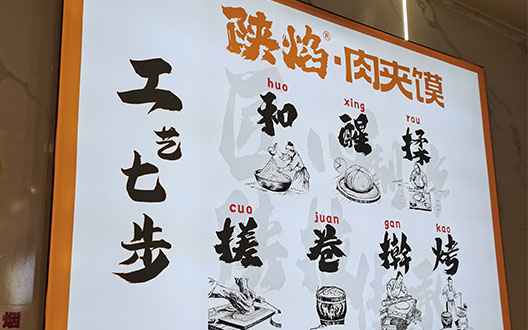 陕焰®·肉夹馍
工艺七步
huo xing rou
和 醒 揉
cuo juan gan kao
搓 卷 擀 烤
烟